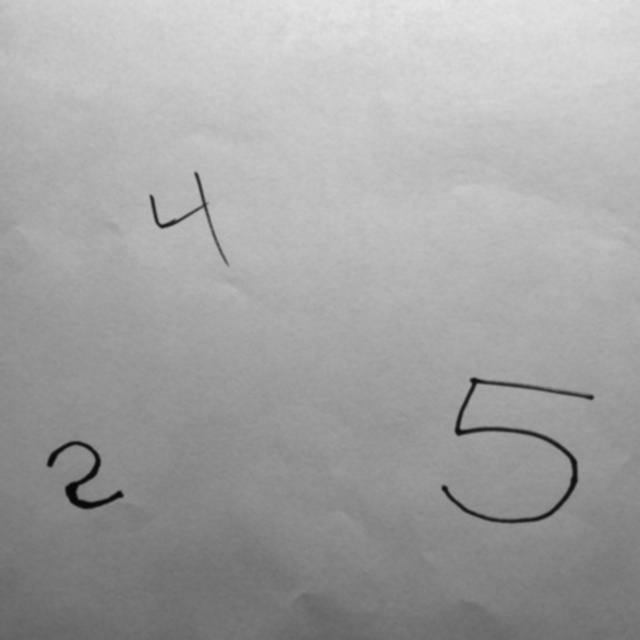 4
2 5